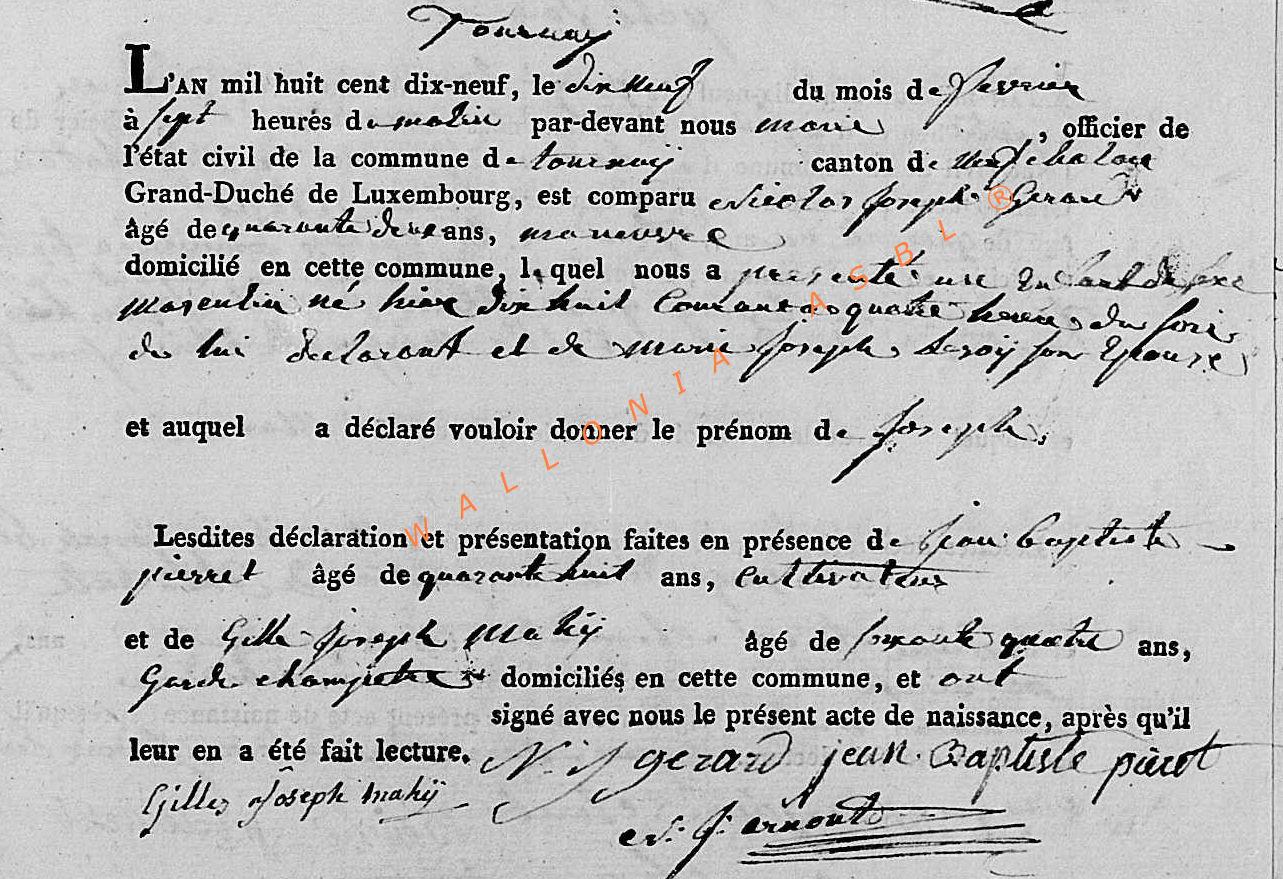 Tournay
L'AN mil huit cent dix-neuf, le dix neuf du mois de fevrier
à sept heures de matin par-devant nous maire, officier de
l'état civil de la commune de tournaÿ canton de neufchateau
Grand-Duché de Luxembourg, est comparu Nicolas joseph Gerard
âgé de quarante deux ans, manuvre
domicilié en cette commune, lequel nous a presenté un enfant de sexe
masculin né hier dix huit courant a quatre heures du soir
de lui declarant et de marie joseph Leroÿ son Epouse
et auquel a déclaré vouloir donner le prénom de joseph.
Lesdites déclaration et présentation faites en présence de jean baptiste
pierret âgé de quarante huit ans, cultivateur
et de Gille joseph Mahÿ âgé de soixante quatre ans,
Garde champetre domiciliés en cette commune, et ont
signé avec nous le présent acte de naissance, après qu'il
leur en a été fait lecture. N. J gerard jean Baptiste pierot
Gilles Joseph mahÿ
N. J. arnould
WALLONIA ASBL ®